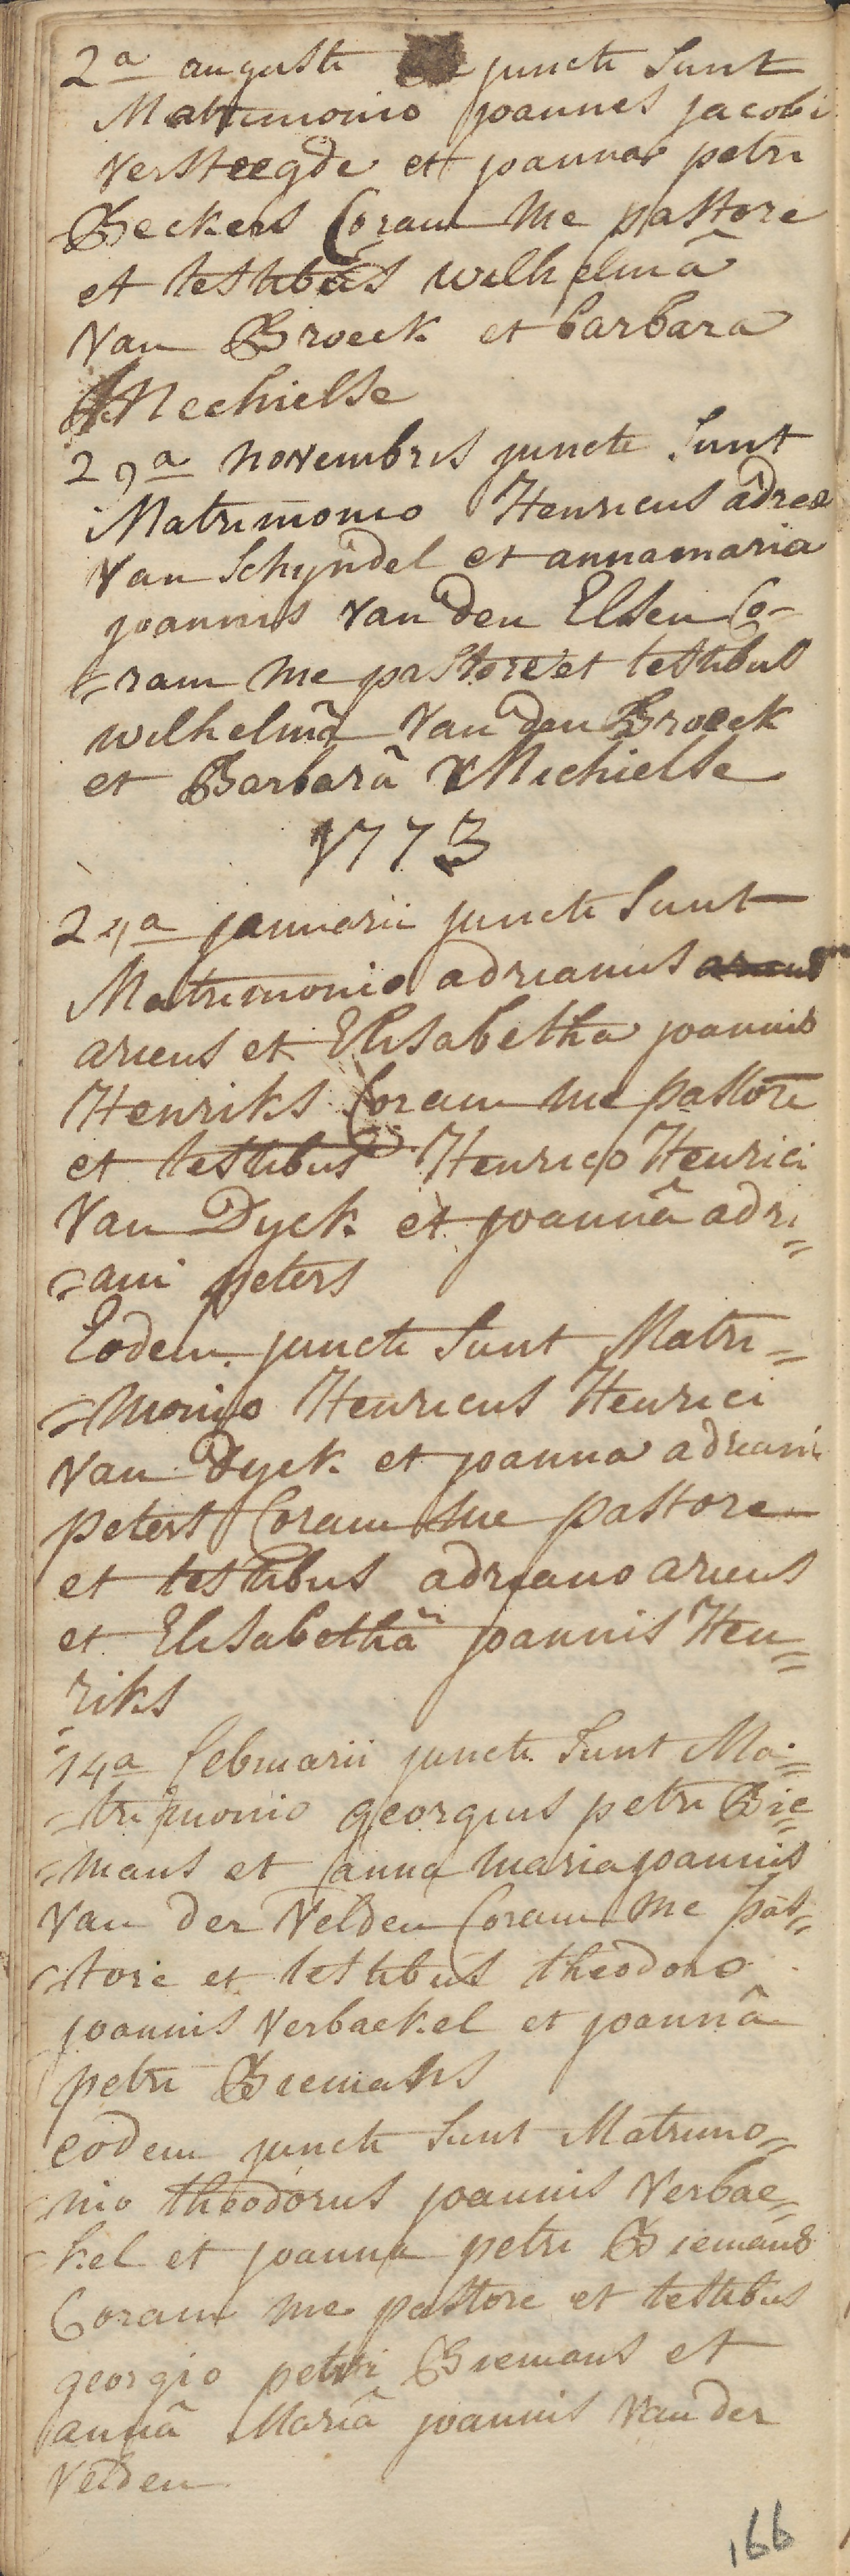 2a augusti juncti sunt
Matrimonio joannes jacobi
Versteegde et joanna petri
Beckers Coram me pastore
et testibus wilhelmâ
Van Broeck et barbara
Mechielse
29a novembris juncti sunt
Matrimonio Henricus adreæ
Van Schyndel et annamaria
joannis Van den Elsen Co-
=ram me pastore et testibus
wilhelmâ Van den Broeck
et Barbarâ Michielse
1773
24a januarii juncti sunt
Matrimonio adrianus
ariens et Elisabetha joannis
Henriks Coram me pastore
et testibus Henrico Henrici
Van Dyck et joannâ adri=
=ani peters
Eodem juncti sunt Matri=
=monio Henricus Henrici
Van Dyck et joanna adriani
peters Coram me pastore
et testibus adriano ariens
et Elisabethâ joannis Hen=
riks
14a februarii juncti sunt Ma=
=trimonio georgius petri Bie=
=mans et anna maria joannis
Van der Velden Coram me pas=
=tore et testibus theodoro
joannis Verbackel et joannâ
petri Biemans
eodem juncti sunt Matrimo=
=nio theodorus joannis Verbac=
=kel et joanna petri Biemans
Coram me pastore et testibus
georgio petri Biemans et
annâ Mariâ joannis Van der
Velden
166